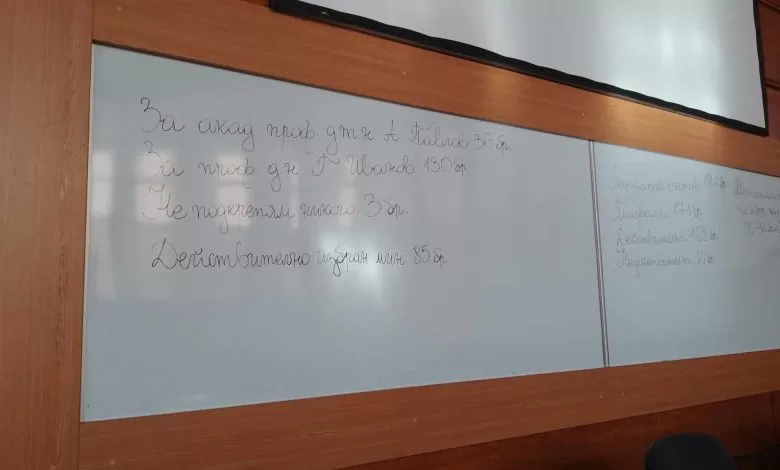 За акад проф. дтн А Павлов 36 бр
За проф дн Г Иванов 130 бр
Не подкрепям никого 3 бр.
Действително избран мин 85 бр
182 бр
Гласували 171 бр
Действителни 169 бр
Недействителни 2 бр